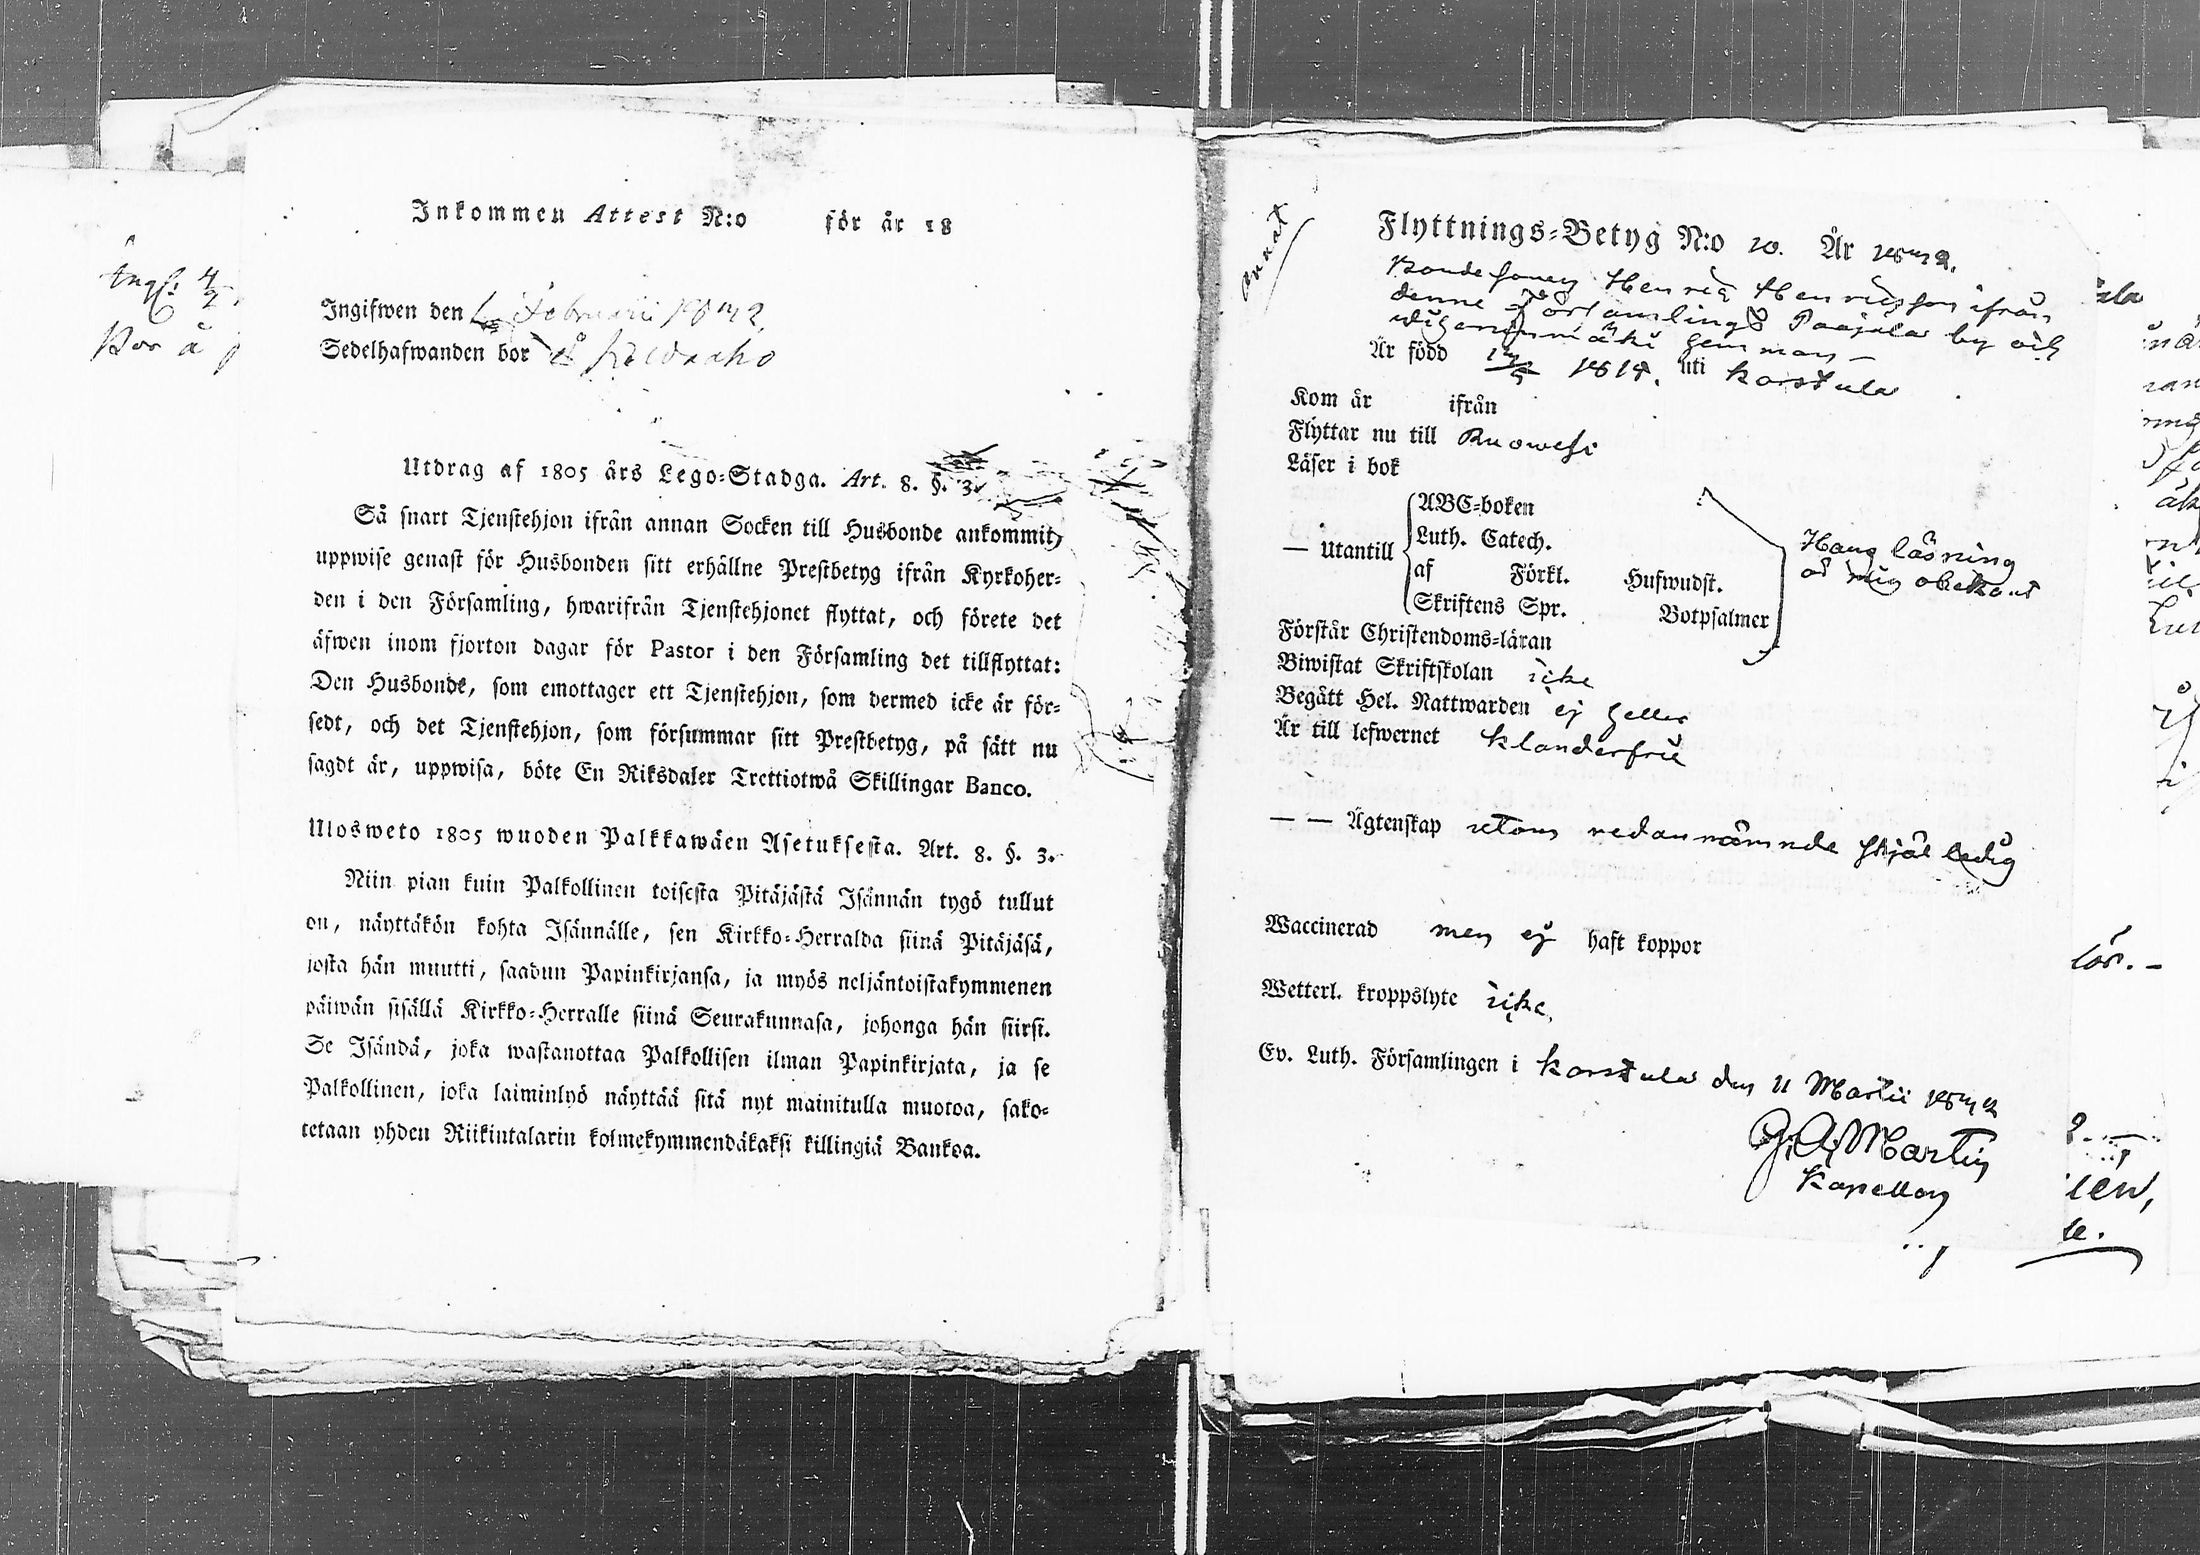 Inkommen Attest N:o för år 18
Ingifwen den Februarii 1842.
Sedelhafwanden bor å
Utdrag af 1805 års Lego-Stadga. Art. 8. §. 3.
Så snart Tjenstehjon ifrån annan Socken till Husbonde ankommit,
uppwise genast för Husbonden sitt erhållne Prestbetyg ifrån Kyrkoher-
den i den Församling, hwarifrån Tjenstehjonet flyttat, och förete det
äfwen inom fjorton dagar för Pastor i den Församling det tillflyttat:
Den Husbonde, som emottager ett Tjenstehjon, som dermed icke är för-
sedt, och det Tjenstehjon, som försummar sitt Prestbetyg, på sätt nu
sagdt är, uppwisa, böte En Riksdaler Trettiotwå Skillingar Banco.
Ulosweto 1805 wuoden Palkkawäen Asetuksesta. Art. 8. §. 3.
Niin pian kuin Palkollinen toisesta Pitäjästä Isännän tygö tullut
on, näyttäkön kohta Isännälle, sen Kirkko-Herralda siinä Pitäjäsä,
josta hän muutti, saadun Papinkirjansa, ja myös neljäntoistakymmenen
päiwän sisällä Kirkko-Herralle siinä Seurakunnasa, johonga hän siirsi.
Se Isändä, joka wastanottaa Palkollisen ilman Papinkirjata, ja se
Palkollinen, joka laiminlyö näyttää sitä nyt mainitulla muotoa, sako-
tetaan yhden Riikintalarin kolmekymmendäkaksi killingiä Bankoa.
Flyttnings-Betyg N:o 10. År 1842.
Bondesonen Henric Henricsson ifrån
denne Församlings Paajala by och
hemman
Är född 1818. uti Karstula
Kom år ifrån
Flyttar nu till Ruowesi
Läser i bok
— Utantill
ABC-boken
Luth. Catech.
af Förkl. Hufwudst.
Skriftens Spr. Botpsalmer
Hans läsning
är mig obekant
Förstår Christendoms-läran
Biwistat Skriftskolan icke
Begått Hel. Nattwarden ej heller
Är till lefwernet klanderfrie
— — Ägtenskap utom nedannämnde skjäl ledig
Waccinerad men ej haft koppor
Wetterl. kroppslyte icke.
Ev. Luth. Församlingen i Karstula den 11 Martii 1842
Martin
Kapellan